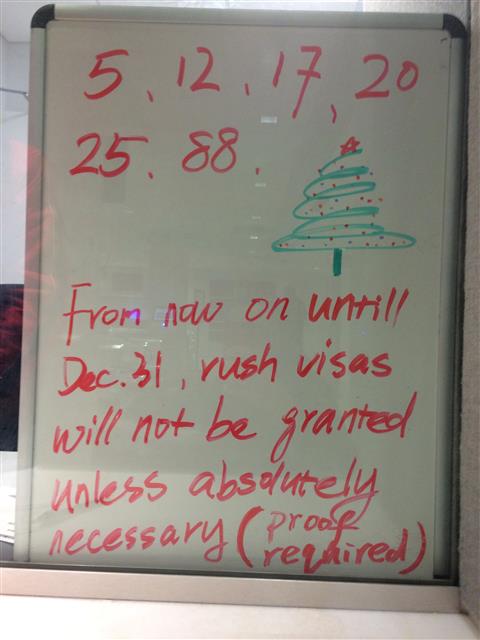 5、12、17、20
25、88.
From now on untill
Dec.31, rush visas
will not be granted
unless absolutely
necessary (proof
required)